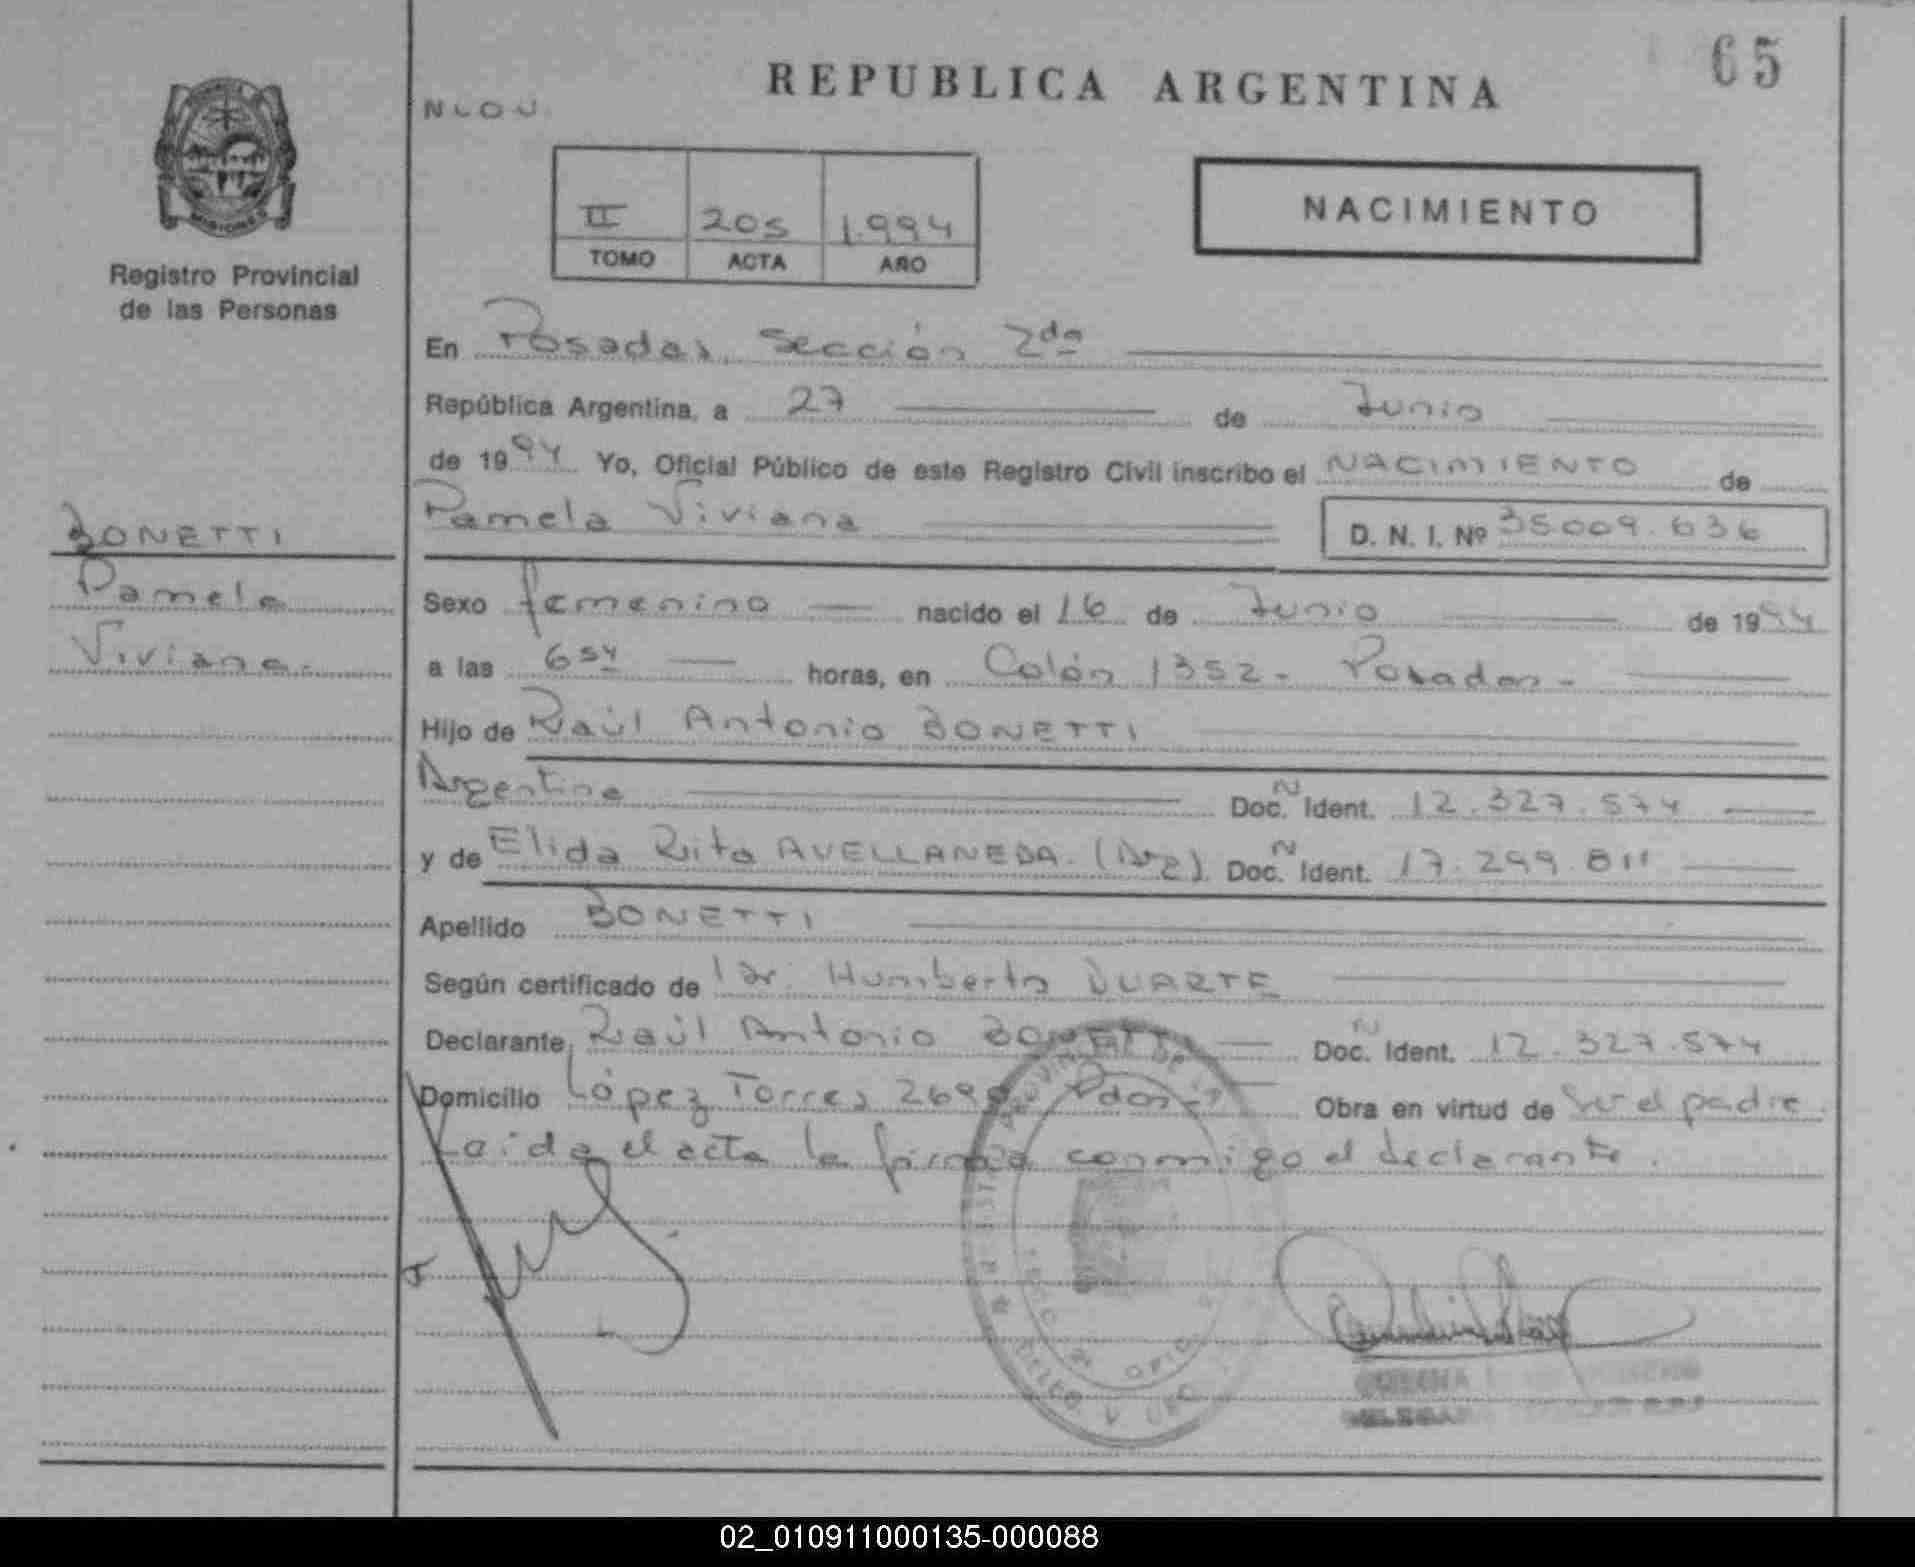 65
REPUBLICA ARGENTINA
N L O U
MISIONES
Registro Provincial
de las Personas
II 205 1.994
TOMO ACTA AÑO
NACIMIENTO
En Posadas, Sección 2da
República Argentina, a 27 de Junio
de 1994 Yo, Oficial Público de este Registro Civil inscribo el NACIMIENTO de
Pamela Viviana D. N. I. Nº 35.009.636
BONETTI
Pamela
Viviana.-
Sexo femenino nacido el 16 de Junio de 1994
a las 6 54 horas, en Colón 1352 - Posadas -
Hijo de Raúl Antonio BONETTI
Argentina Doc. N Ident. 12.327.574
y de Elida Rita AVELLANEDA. (Arg). Doc. N Ident. 17.299.811
Apellido BONETTI
Según certificado de l Dr. Humberto DUARTE
Declarante, Raúl Antonio BONETTI Doc. N Ident. 12.327.574
Domicilio López Torres Pdas. Obra en virtud de ser el padre.
Leida el acta la firma conmigo el declarante.
02_010911000135-000088